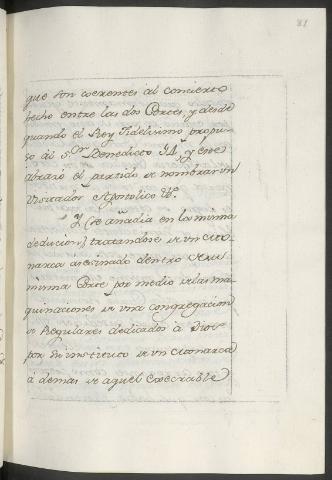 81
que son coerentes al concierto
hecho entre las dos Cortes, y desde
quando el Rey Fidelisimo propu-
so al S.or Benedicto 14, y este
abrazó el partido de nombrar un
Visitador Apostolico &a.
Y (se añadia en la misma
deducion) tratandose de un Mo-
narca asesinado dentro de su
misma Corte por medio de las ma-
quinaciones de una congregacion
de Regulares dedicados á Dios
por su instituto de un Monarca
á demas de aquel execrable